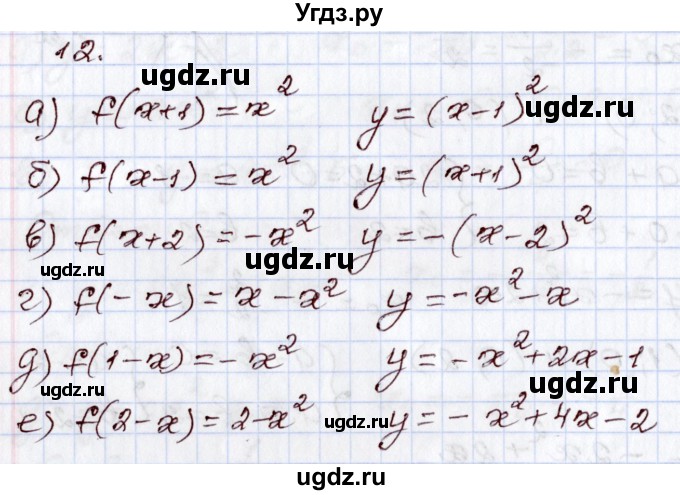 Угдз.ру
12.
ugdz.ru ugdz.ru
а) f(x+1) = x² y = (x-1)²
ugdz.ru
б) f(x-1) = x² y = (x+1)²
в) f(x+2) = -x² y = -(x-2)²
ugdz.ru ugdz.ru
г) f(-x) = x - x² y = -x² - x
д) f(1-x) = -x² y = -x² + 2x - 1
ugdz.ru ugdz.ru
е) f(2-x) = 2 - x² y = -x² + 4x - 2
ugdz.ru
ugdz.ru